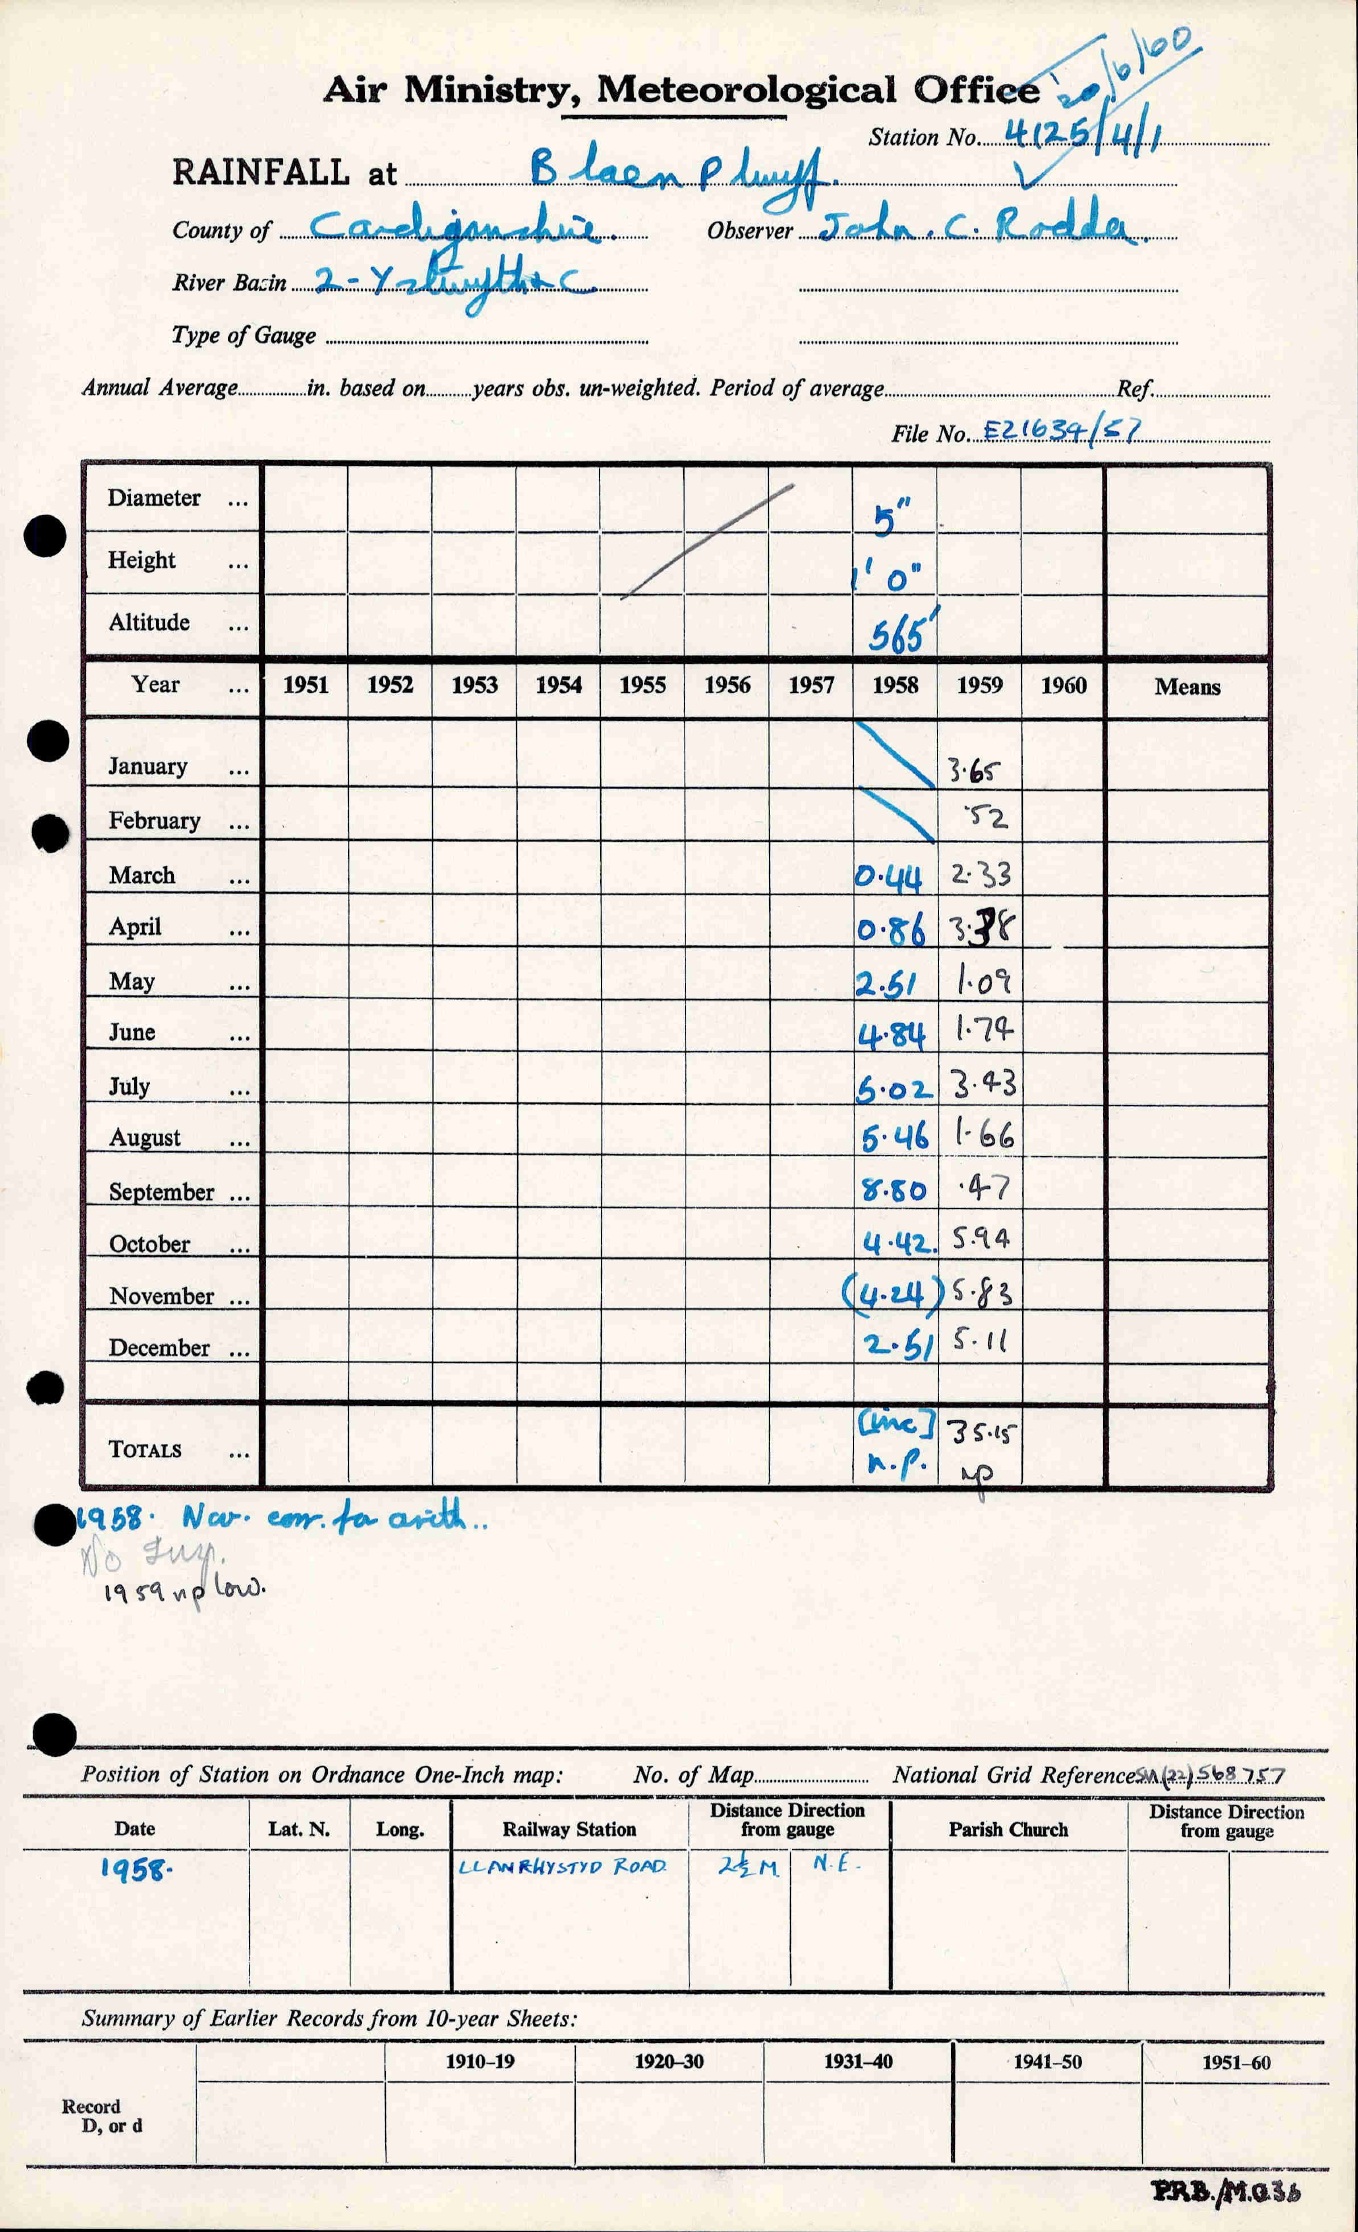 20/6/60
Air Ministry, Meteorological Office
Station No. 4125/4/1
RAINFALL at Blaen Plwyf.
County of Cardiganshire. Observer John. C. Rodda.
River Basin 2 - Ystwyth & C.
Type of Gauge
Annual Average in. based on years obs. un-weighted. Period of average Ref.
File No. E21634/57
Diameter ... 5"
Height ... 1' 0"
Altitude ... 565'
Year ... 1951 1952 1953 1954 1955 1956 1957 1958 1959 1960 Means
January ... 3.65
February ... .52
March ... 0.44 2.33
April ... 0.86 3.38
May ... 2.51 1.09
June ... 4.84 1.74
July ... 5.02 3.43
August ... 5.46 1.66
September ... 8.80 .47
October ... 4.42. 5.94
November ... (4.24) 5.83
December ... 2.51 5.11
TOTALS ... [inc] 35.15
n.p. np
1958. Nov. corr. for arith..
No Insp.
1959 np low.
Position of Station on Ordnance One-Inch map: No. of Map National Grid Reference SN(22) 568 757
Date Lat. N. Long. Railway Station Distance Direction from gauge Parish Church Distance Direction from gauge
1958. LLANRHYSTYD ROAD 2½ M. N.E.
Summary of Earlier Records from 10-year Sheets:
1910–19 1920–30 1931–40 1941–50 1951–60
Record
D, or d
P.R.B./M.O.36